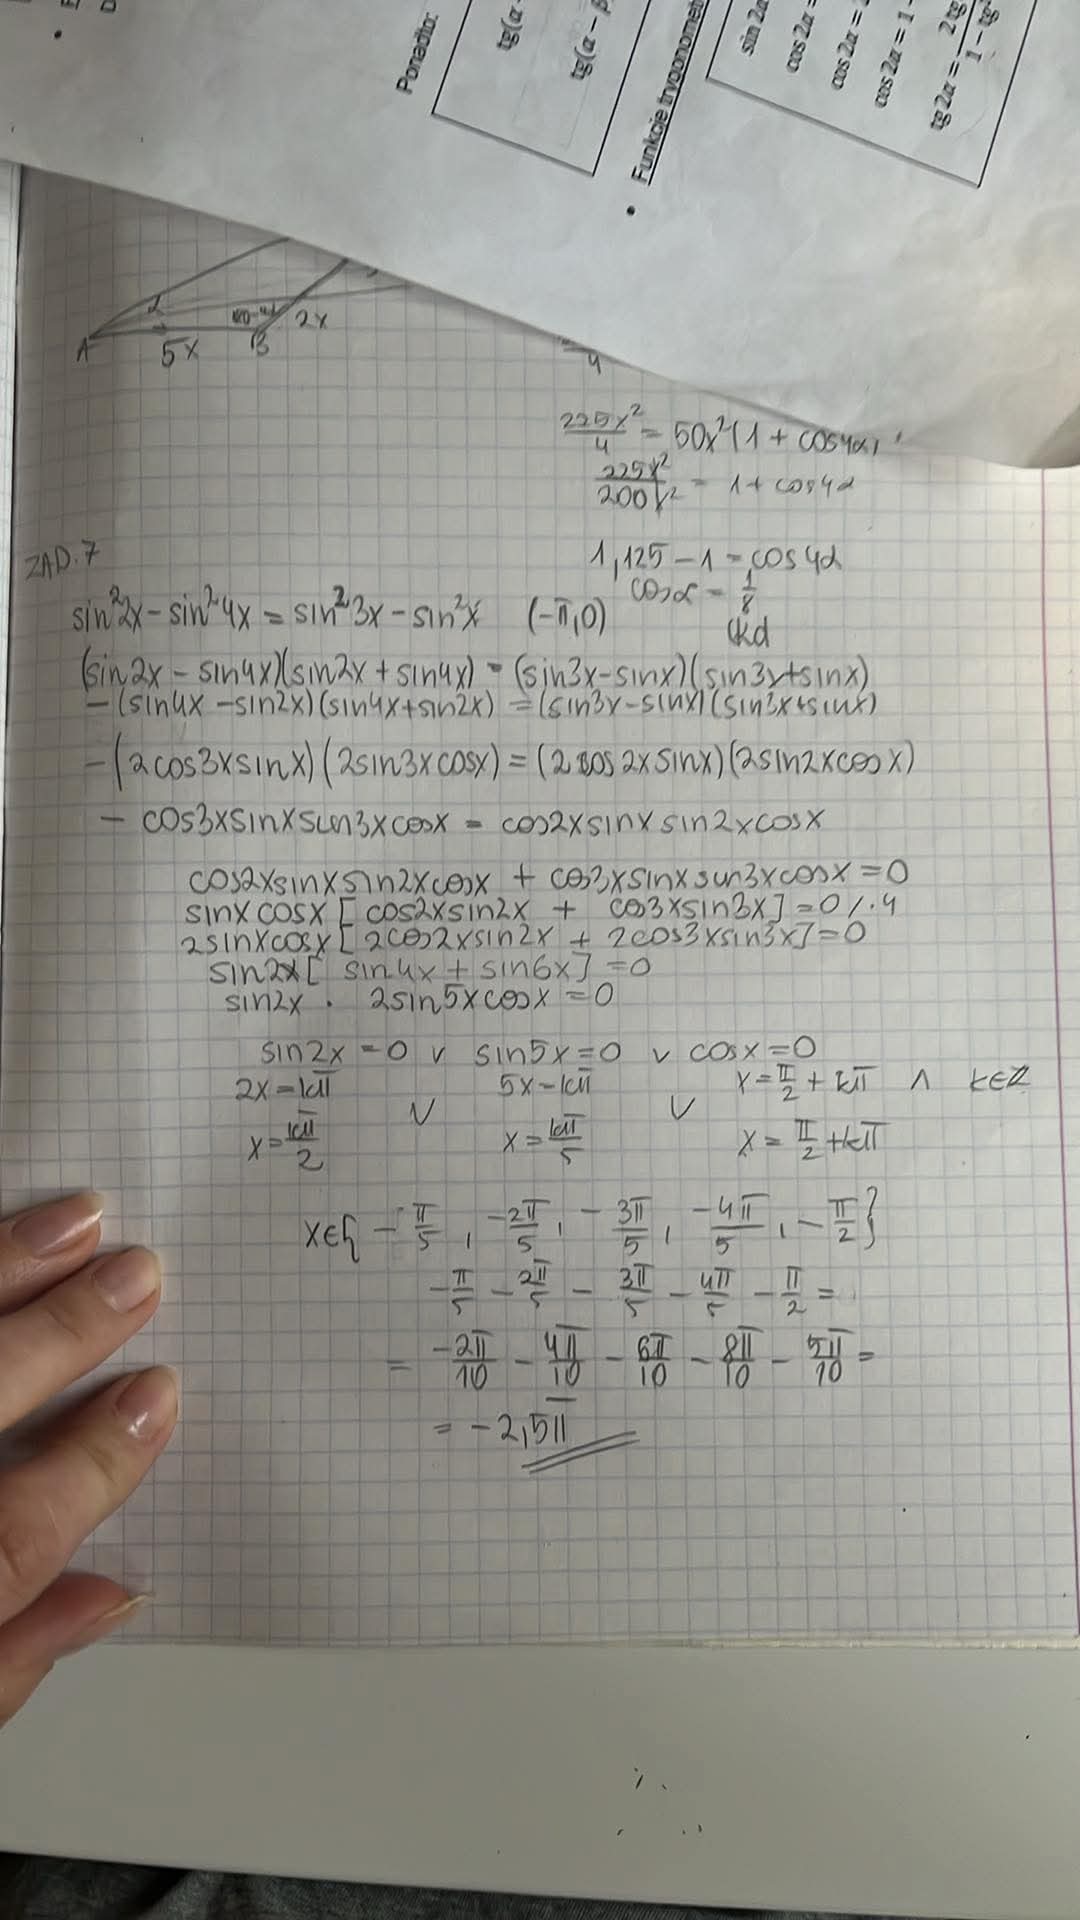 Ponadto:
tg(α -
tg(α - β
• Funkcje trygonomet
sin 2α
cos 2α =
cos 2α =
cos 2α = 1 -
tg 2α = 2 tg / 1 - tg
A 5x B 2x
4
225x²/4 = 50x²(1 + cos4α)
225x²/200x² = 1 + cos4α
1,125 - 1 = cos4α
cosα = 1/8
ckd
ZAD.7
sin²2x - sin²4x = sin²3x - sin²x (-π,0)
(sin2x - sin4x)(sin2x + sin4x) = (sin3x - sinx)(sin3x + sinx)
- (sin4x - sin2x)(sin4x + sin2x) = (sin3x - sinx)(sin3x + sinx)
- (2cos3xsinx)(2sin3xcosx) = (2cos2xsinx)(2sin2xcosx)
- cos3xsinxsin3xcosx = cos2xsinxsin2xcosx
cos2xsinxsin2xcosx + cos3xsinxsin3xcosx = 0
sinxcosx[cos2xsin2x + cos3xsin3x] = 0 /·4
2sinxcosx[2cos2xsin2x + 2cos3xsin3x] = 0
sin2x[sin4x + sin6x] = 0
sin2x · 2sin5xcosx = 0
sin2x = 0 ∨ sin5x = 0 ∨ cosx = 0
2x = kπ ∨ 5x = kπ ∨ x = π/2 + kπ ∧ k∈Z
x = kπ/2 x = kπ/5 x = π/2 + kπ
x∈{-π/5, -2π/5, -3π/5, -4π/5, -π/2}
-π/5 - 2π/5 - 3π/5 - 4π/5 - π/2 =
= -2π/10 - 4π/10 - 6π/10 - 8π/10 - 5π/10 =
= -2,5π